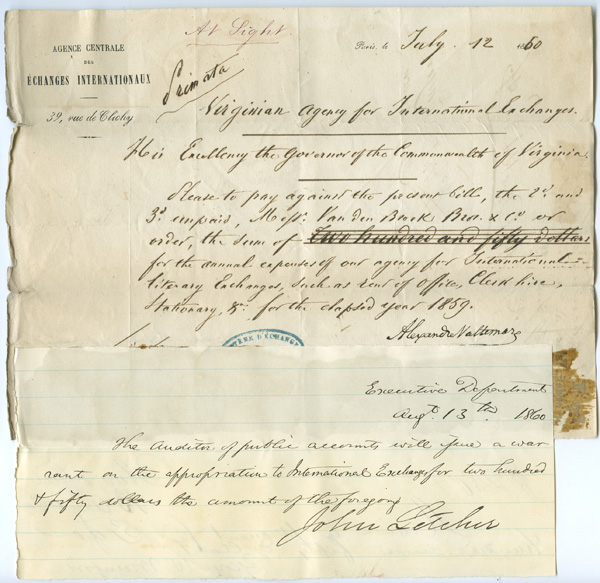 At Sight.
AGENCE CENTRALE
DES
ÉCHANGES INTERNATIONAUX
39, rue de Clichy
Primata
Paris, le July 12 1860
Virginian Agency for International Exchanges.
His Excellency the Governor of the Commonwealth of Virginia
Please to pay against the present bill, the 2d and
3d unpaid, Messrs. Van den Broek Bros. & Co or
order, the sum of two hundred and fifty dollars
for the annual expenses of our agency for International
literary Exchanges, such as rent of Office, Clerk hire,
Stationary, &c. for the elapsed year 1859.
Alexandre Vattemare
D'ÉCHANGE
Executive Department
Augt 13th 1860
The auditor of public accounts will issue a war
rant on the appropriation to International Exchanges for two hundred
& fifty dollars the amount of the foregoing
John Letcher